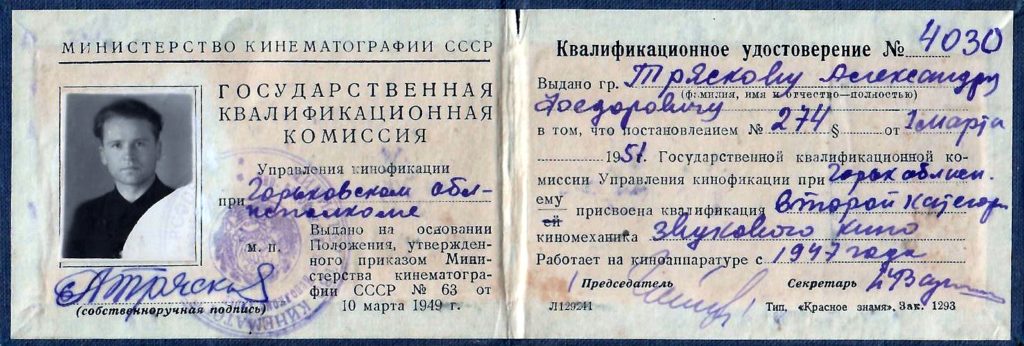 МИНИСТЕРСТВО КИНЕМАТОГРАФИИ СССР
ГОСУДАРСТВЕННАЯ
КВАЛИФИКАЦИОННАЯ
КОМИССИЯ
Управления кинофикации
при Горьковском обл-
исполкоме
Выдано на основании
м. п. Положения, утвержден-
ного приказом Мини-
стерства кинематогра-
фии СССР № 63 от
10 марта 1949 г.
(собственноручная подпись)
Квалификационное удостоверение № 4030
Выдано гр. Тряскову Александру
(фамилия, имя и отчество—полностью)
Федоровичу
в том, что постановлением № 274 § от 1 марта
1951. Государственной квалификационной ко-
миссии Управления кинофикации при Горьк облисп.
ему
ей присвоена квалификация второй категор
киномеханика звукового кино
Работает на киноаппаратуре с 1947 года
Председатель Секретарь
Л129241 Тип. «Красное знамя». Зак. 1293